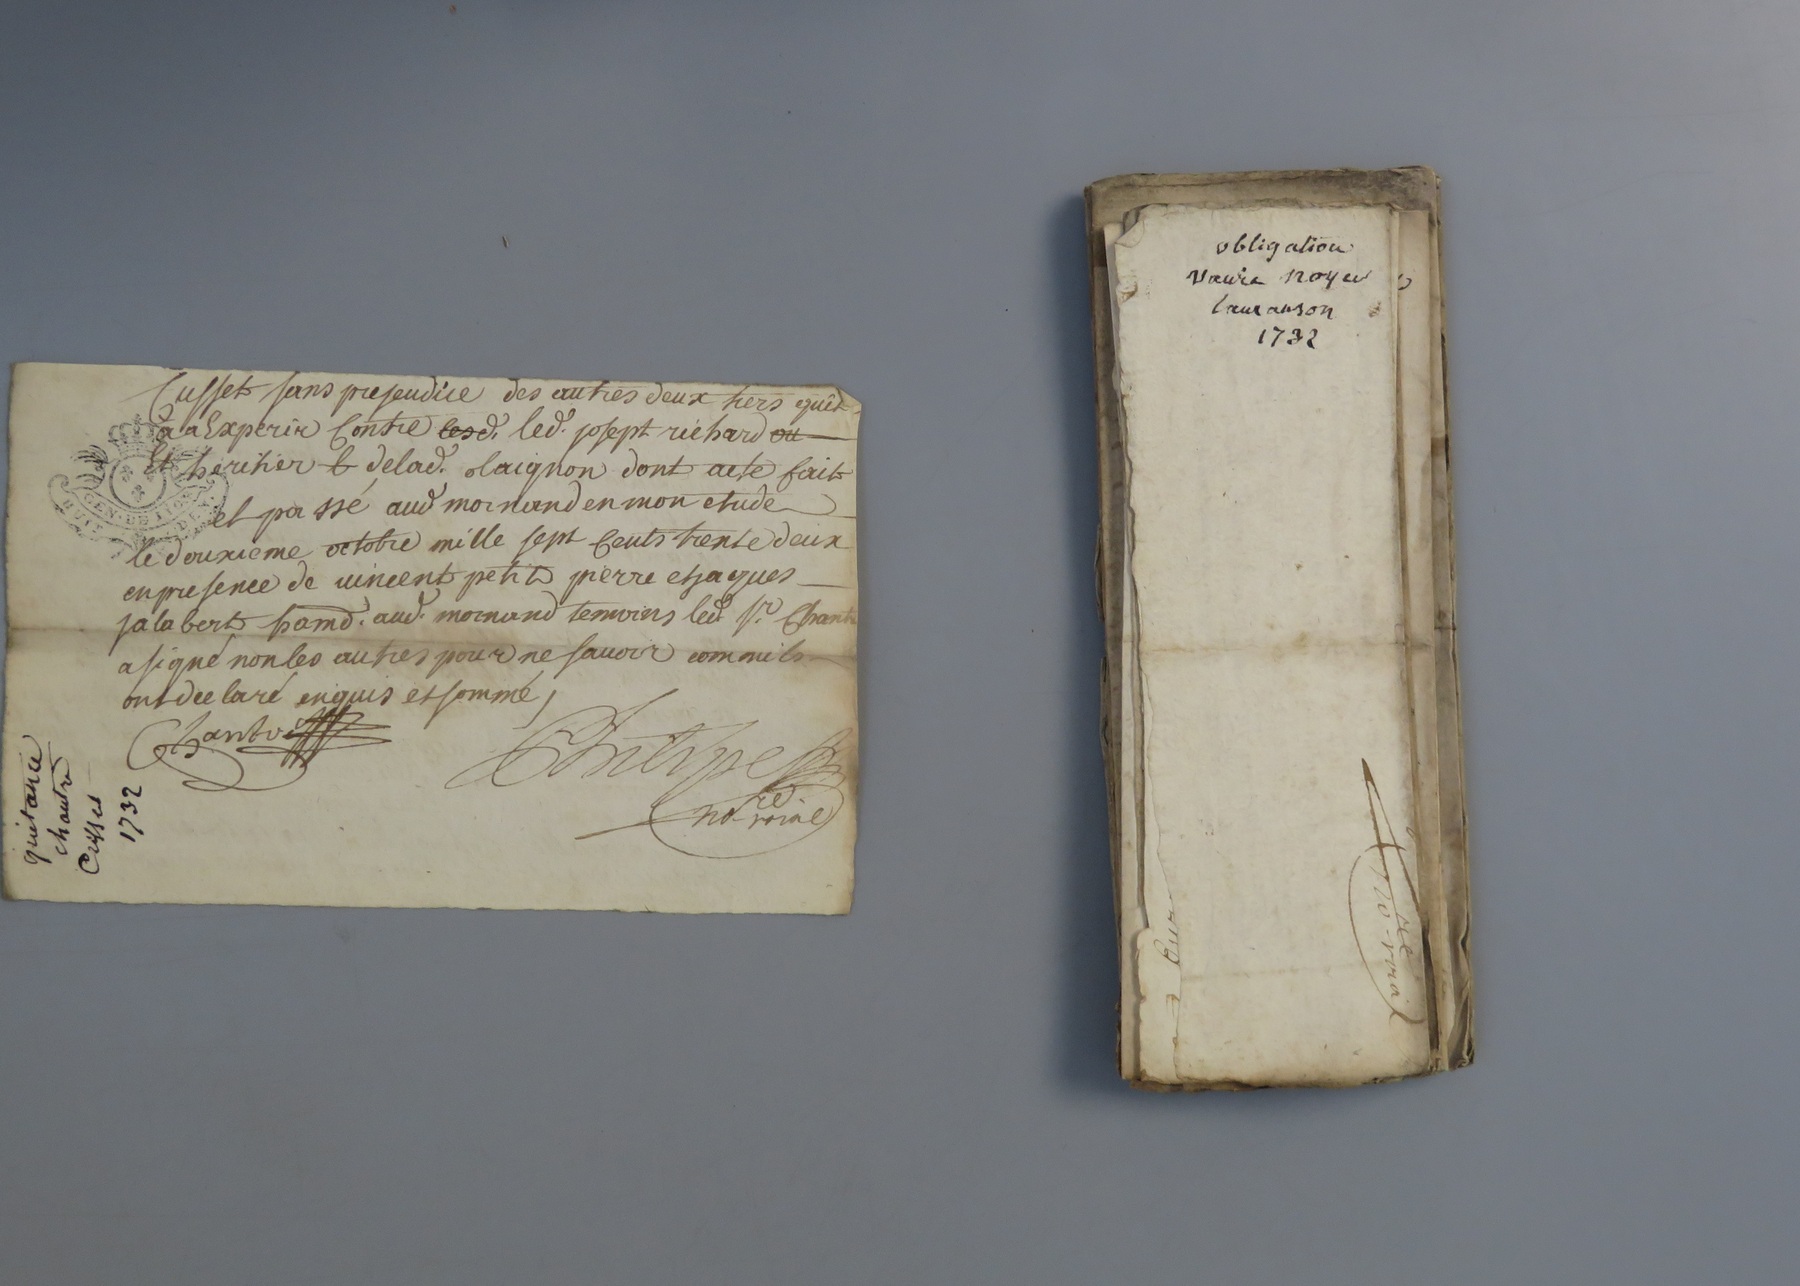 Cusset sans prejeudice des autres deux tiers quil
a a Experir Contre lesd. led. josept richard ou
et heritier b delad. olaignon dont acte fait
et passé aud mornand en mon etude
le douxieme octobre mille sept Cents trente deux
en presence de vincent petit pierre et jaques
jalabert hamd. aud. mornand temoins led. sr. Chantre
a signé non les autres pour ne savoir comm ils
ont declaré enquis et sommé
Chantre
no re roial
quitance
chantre
Cusset
1732
GEN. DE LION
obligation
noyer
lauranson
1732
no re roial